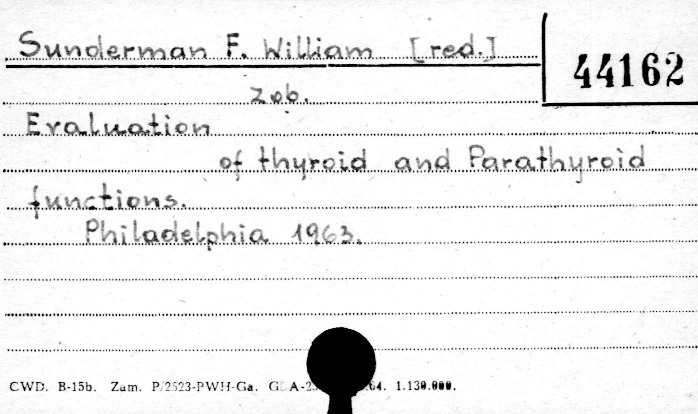 Sunderman F. William [red.]
44162
zob.
Evaluation
of thyroid and Parathyroid
functions.
Philadelphia 1963.
CWD. B-15b. Zam. P/2523-PWH-Ga. 64. 1.130.000.